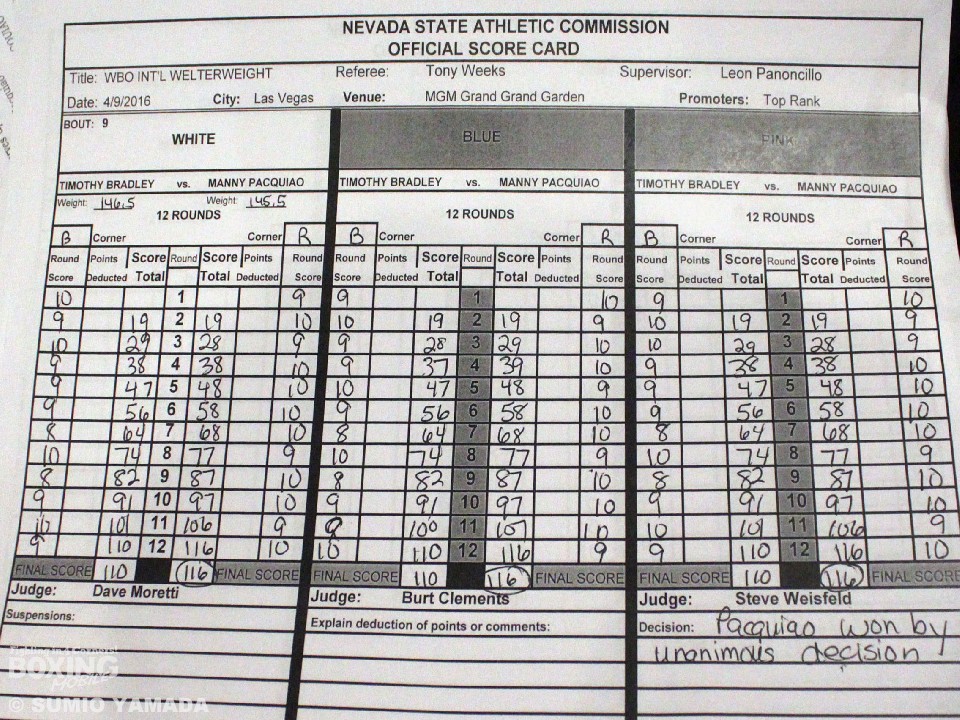 NEVADA STATE ATHLETIC COMMISSION
OFFICIAL SCORE CARD
Title: WBO INT'L WELTERWEIGHT Referee: Tony Weeks Supervisor: Leon Panoncillo
Date: 4/9/2016 City: Las Vegas Venue: MGM Grand Grand Garden Promoters: Top Rank
BOUT: 9
WHITE BLUE PINK
TIMOTHY BRADLEY vs. MANNY PACQUIAO TIMOTHY BRADLEY vs. MANNY PACQUIAO TIMOTHY BRADLEY vs. MANNY PACQUIAO
Weight: 146.5 Weight: 145.5
12 ROUNDS 12 ROUNDS 12 ROUNDS
B Corner Corner R B Corner Corner R B Corner Corner R
Round Points Score Round Score Points Round Round Points Score Round Score Points Round Round Points Score Round Score Points Round
Score Deducted Total Total Deducted Score Score Deducted Total Total Deducted Score Score Deducted Total Total Deducted Score
10 1 9 9 1 10 9 1 10
9 19 2 19 10 10 19 2 19 9 10 19 2 19 9
10 29 3 28 9 9 28 3 29 10 10 29 3 28 9
9 38 4 38 10 9 37 4 39 10 9 38 4 38 10
9 47 5 48 10 10 47 5 48 9 9 47 5 48 10
9 56 6 58 10 9 56 6 58 10 9 56 6 58 10
8 64 7 68 10 8 64 7 68 10 8 64 7 68 10
10 74 8 77 9 10 74 8 77 9 10 74 8 77 9
8 82 9 87 10 8 82 9 87 10 8 82 9 87 10
9 91 10 97 10 9 91 10 97 10 9 91 10 97 10
10 101 11 106 9 9 100 11 107 10 10 101 11 106 9
9 110 12 116 10 10 110 12 116 9 9 110 12 116 10
FINAL SCORE 110 116 FINAL SCORE FINAL SCORE 110 116 FINAL SCORE FINAL SCORE 110 116 FINAL SCORE
Judge: Dave Moretti Judge: Burt Clements Judge: Steve Weisfeld
Suspensions: Explain deduction of points or comments: Decision: Pacquiao won by
unanimous decision
BOXING
MOBILE
© SUMIO YAMADA